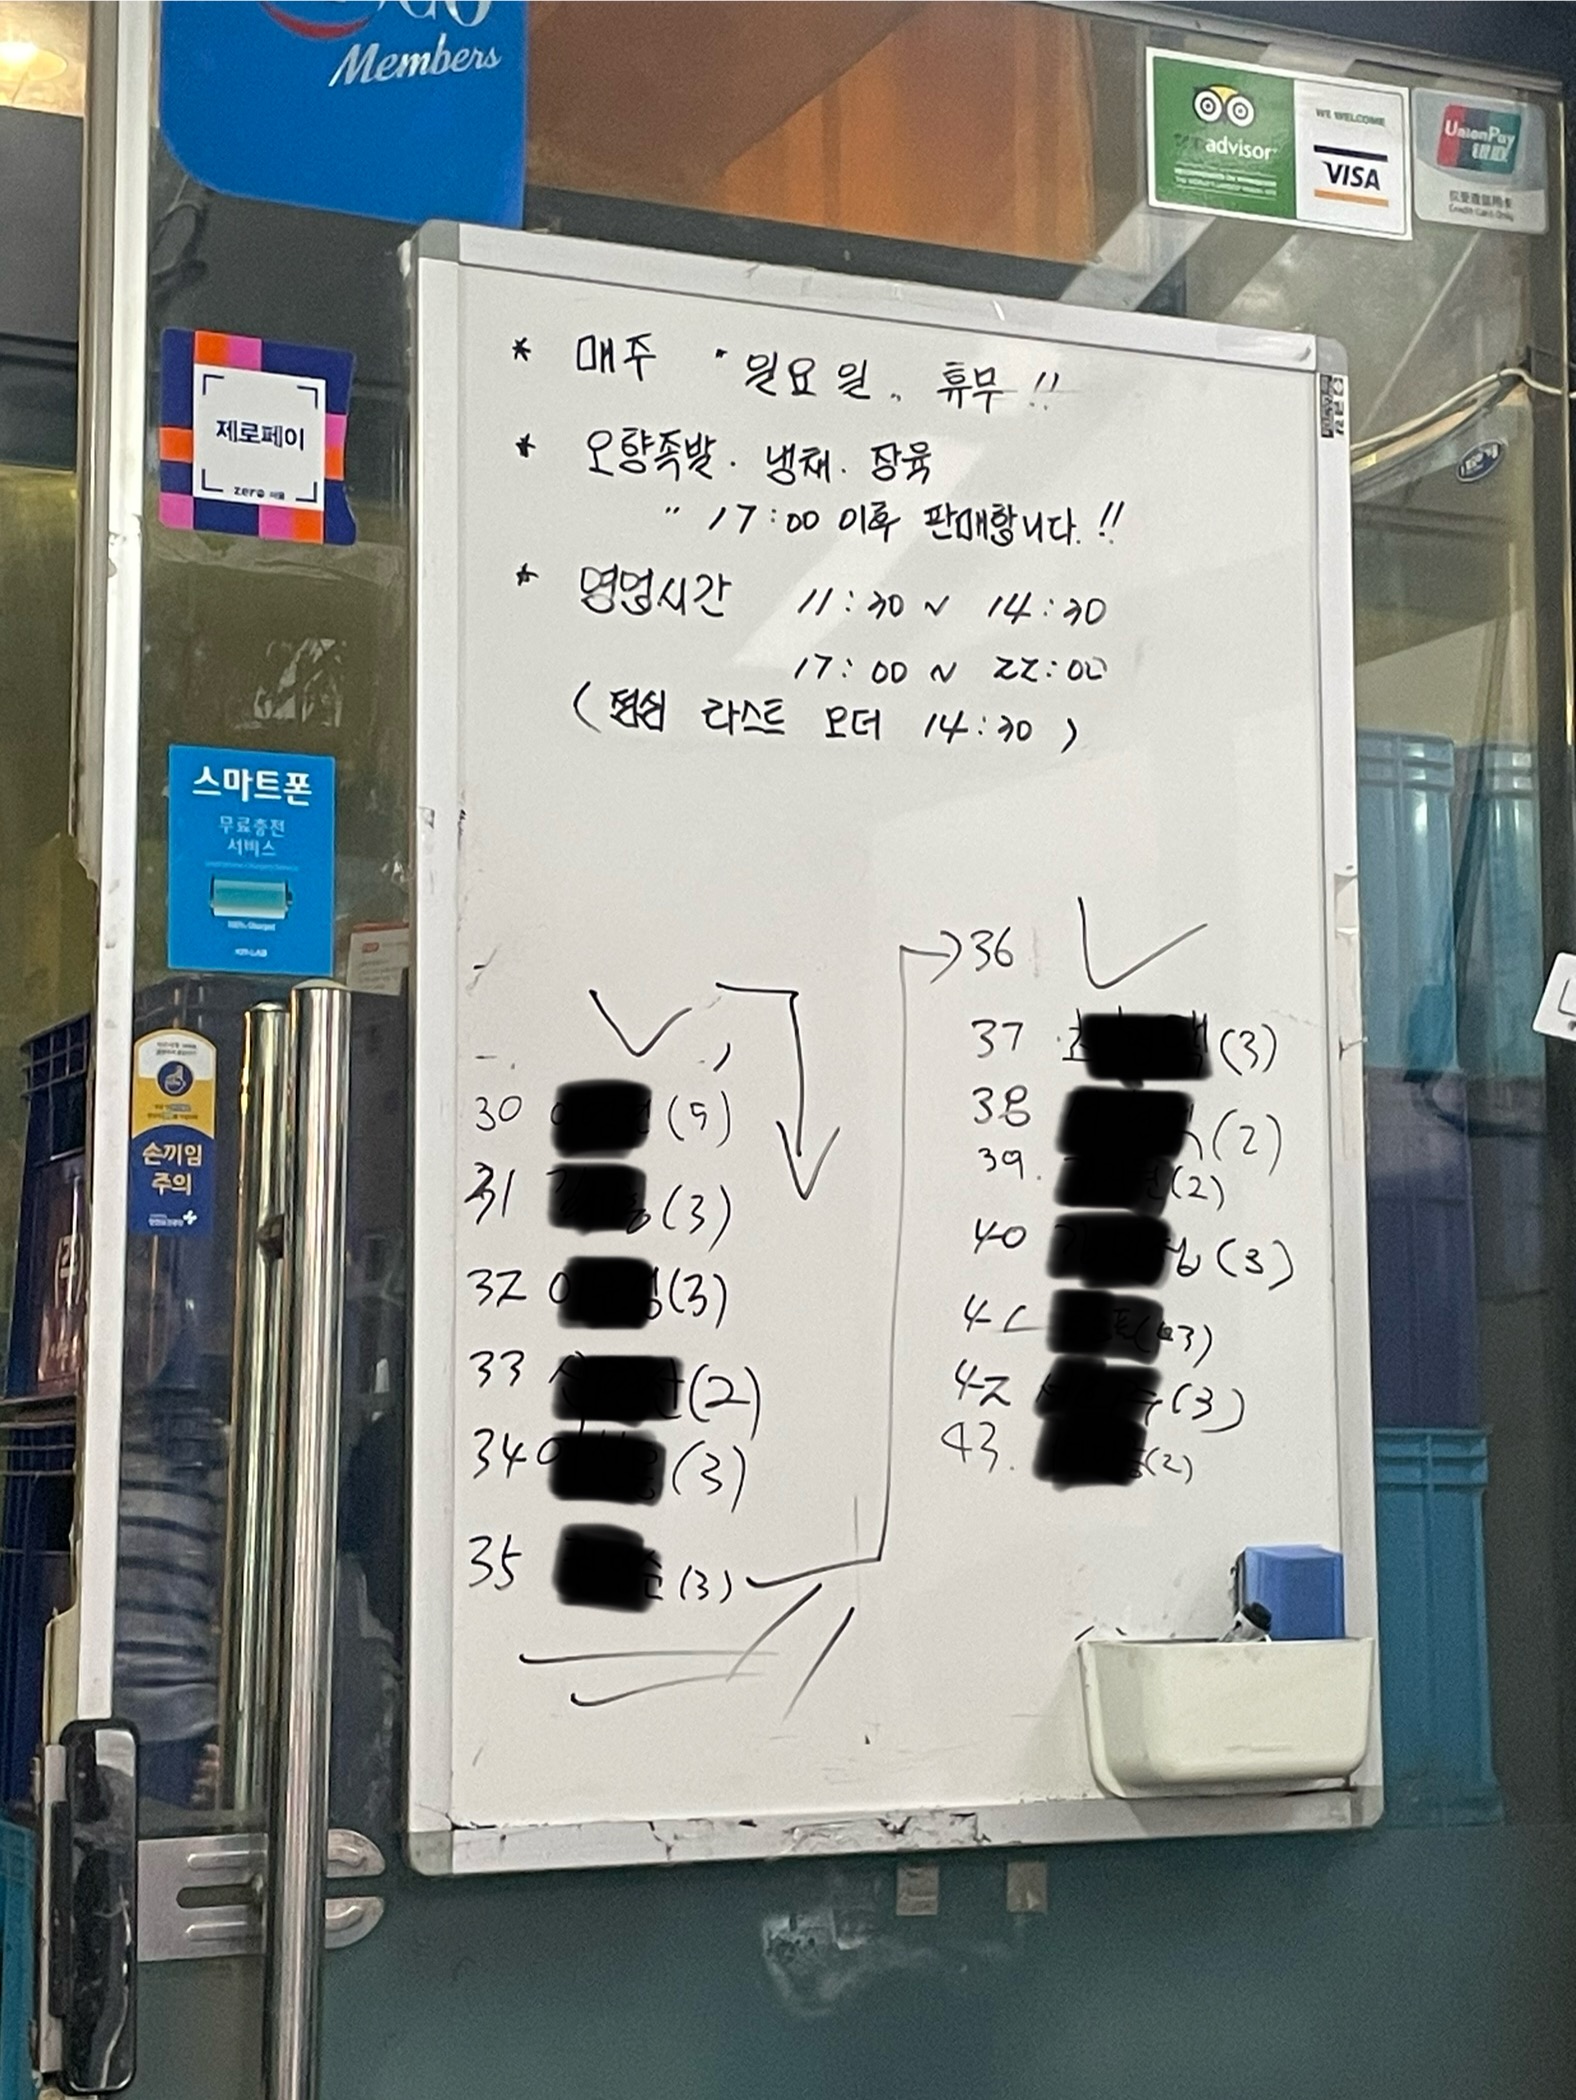 Members
advisor
WE WELCOME
VISA
UnionPay
제로페이
zero 서울
스마트폰
무료충전
서비스
100% Charged
손끼임
주의
* 매주 " 일요일 " 휴무 !!
* 오향족발. 냉채. 장육
" 17:00 이후 판매합니다. !!
* 영업시간 11:30 ~ 14:30
17:00 ~ 22:00
(점심 라스트 오더 14:30)
30 (5)
31 (3)
32 (3)
33 (2)
34 (3)
35 (3)
→36
37 (3)
38 (2)
39. (2)
40 (3)
41 (3)
42 (3)
43. (2)